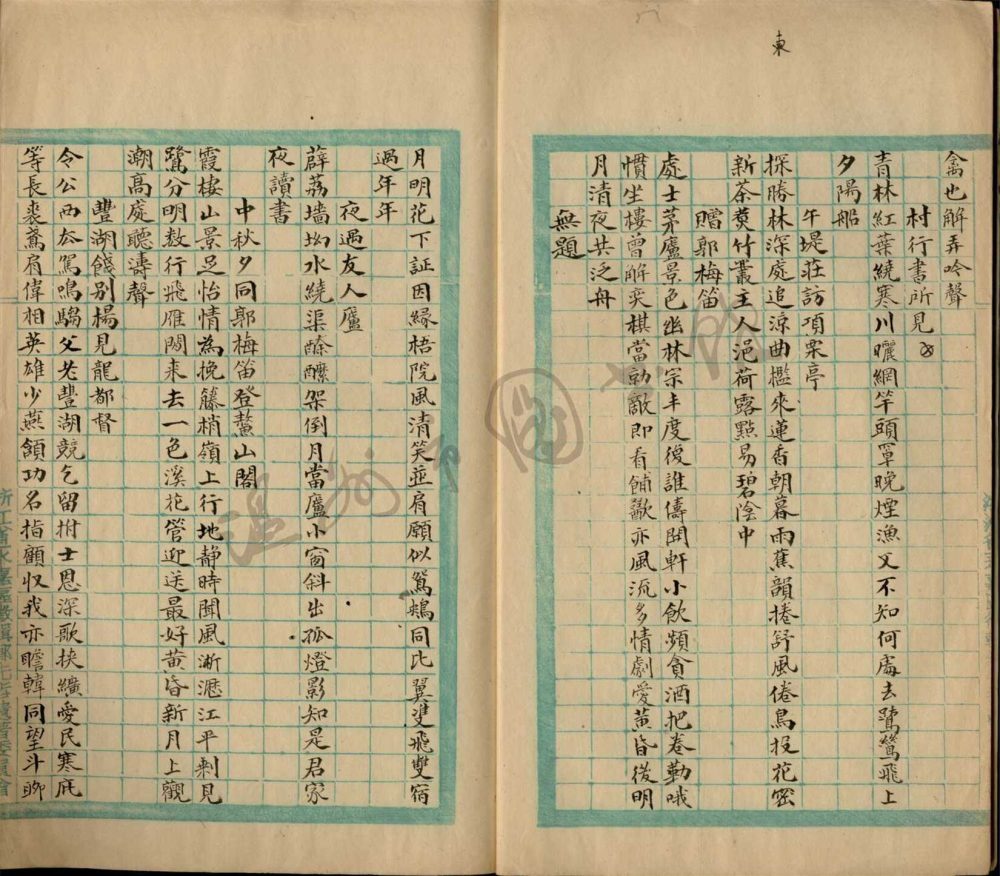 東
禽也解弄吟聲
村行書所見
青林紅葉繞寒川曬網竿頭罩晚煙漁父不知何處去鷺鷥飛上
夕陽船
午堤莊訪項栗亭
探勝林深處追涼曲檻來蓮香朝暮雨蕉韻捲舒風倦鳥投花密
新茶煑竹叢主人浥荷露點易碧陰中
贈郭梅笛
處士茅廬景色幽林宗丰度後誰儔開軒小飲頻貪酒把卷勤哦
慣坐樓曾解奕棋當勍敵即看餔歠亦風流多情劇愛黄昏後明
月清夜共泛舟
無題
月明花下証因緣梧院風清笑並肩願似鴛鴂同比翼雙飛雙宿
過年年
夜過友人廬
薜荔墻坳水繞渠酴醾架倒月當廬小窗斜出孤燈影知是君家
夜讀書
中秋夕同郭梅笛登鰲山閣
霞棲山景足怡情為挽藤梢嶺上行地静時聞風淅瀝江平剩見
鷺分明数行飛雁閱来去一色溪花管迎送最好黄昏新月上觀
潮高處聽濤聲
豐湖餞别楊見龍都督
令公西亦駕鳴騶父老豐湖競乞留拊士恩深歌挟纊愛民寒庇
等長裘鳶肩偉相英雄少燕頷功名指顧収我亦瞻韓同望斗聊